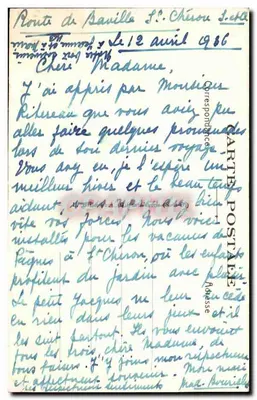 Route de Baville St. Chéron S et O
Le 12 avril 1936
Chère Madame,
J'ai appris par Monsieur
que vous aviez pu
aller faire quelques promenades
lors de son dernier voyage.
Vous avez eu, je l'espère un
meilleur hiver et le beau temps
aidant, bien
vite vos forces. Nous voici
installés pour les vacances de
Pâques à St Chéron, où les enfants
profitent du jardin avec plaisir
Le petit Jacques ne leur en cède
en rien dans leurs jeux et il
les suit partout. Ils vous envoient
tous les trois, chère Madame, de
bons baisers. J'y joins mon respectueux
et affectueux souvenir. Mon mari
ses respectueux sentiments
Mad.
CARTE POSTALE
Correspondance
Adresse